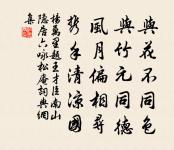 與花不同色
與竹元同德
風月偏相同
攜手清涼國
楊萬里題王才臣南山
隱居六詠松庵詞典網
集